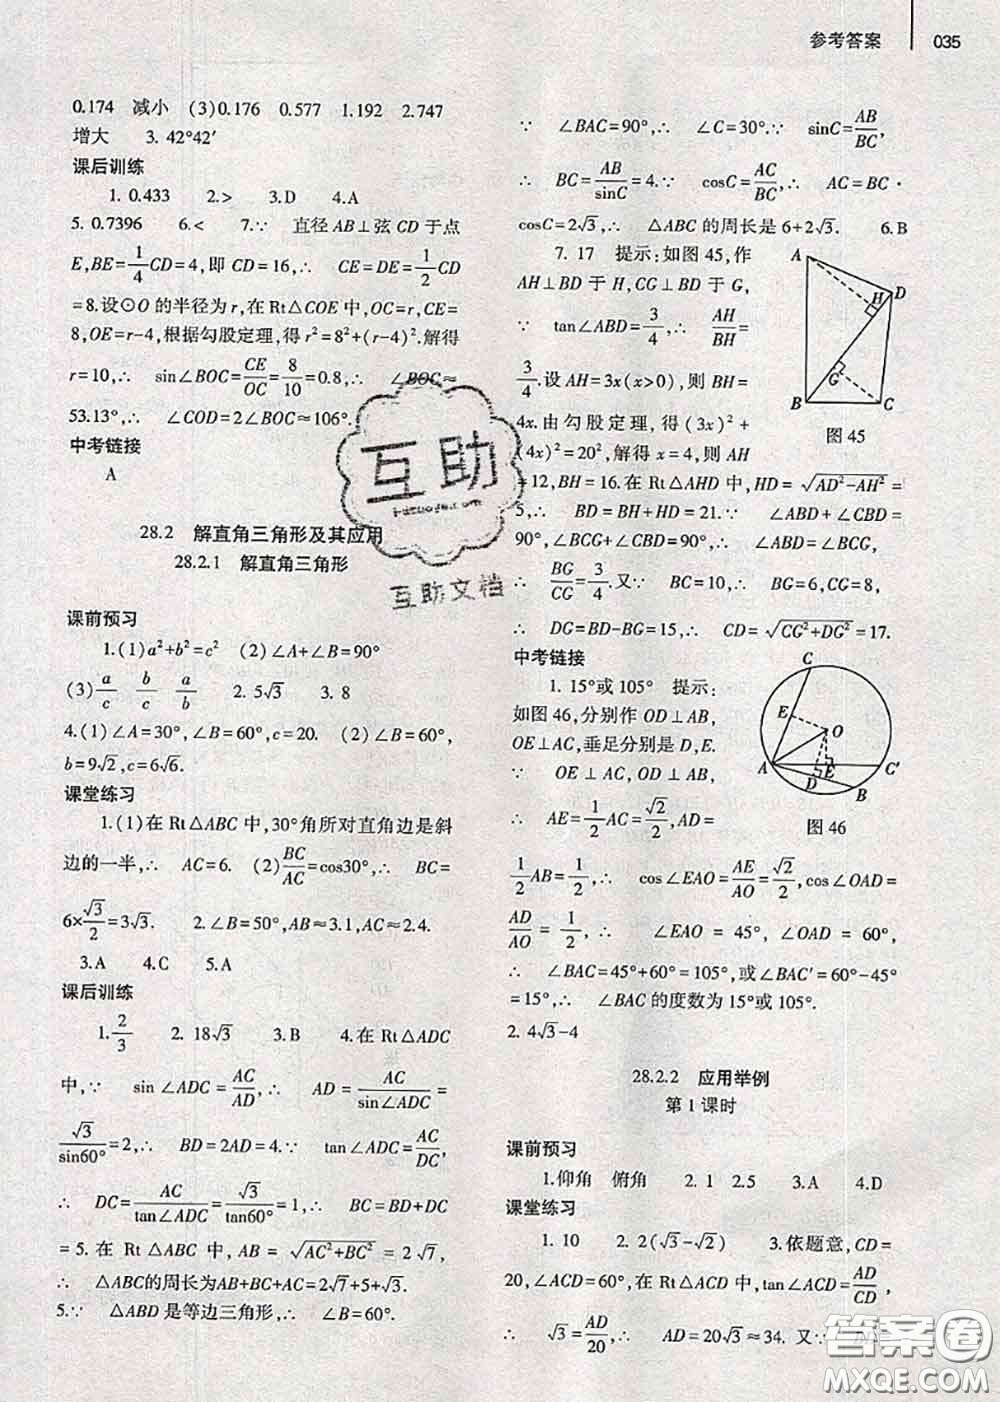 参考答案 035
0.174 减小 (3)0.176 0.577 1.192 2.747
增大 3. 42°42′
课后训练
1. 0.433 2.> 3.D 4.A
5. 0.7396 6.< 7.∵ 直径AB⊥弦CD于点
E,BE=1/4CD=4,即CD=16,∴ CE=DE=1/2CD
=8.设⊙O的半径为r,在Rt△COE中,OC=r,CE=
8,OE=r-4,根据勾股定理,得r²=8²+(r-4)².解得
r=10,∴ sin∠BOC=CE/OC=8/10=0.8,∴ ∠BOC≈
53.13°,∴ ∠COD=2∠BOC≈106°.
中考链接
A
28.2 解直角三角形及其应用
28.2.1 解直角三角形
课前预习
1.(1)a²+b²=c² (2)∠A+∠B=90°
(3)a/c b/c a/b 2. 5√3 3. 8
4.(1)∠A=30°,∠B=60°,c=20. (2)∠B=60°,
b=9√2,c=6√6.
课堂练习
1.(1)在Rt△ABC中,30°角所对直角边是斜
边的一半,∴ AC=6. (2)BC/AC=cos30°,∴ BC=
6×√3/2=3√3. 2.∠B=50°,AB≈3.1,AC≈2.4.
3.A 4.C 5.A
课后训练
1. 2/3 2. 18√3 3.B 4.在Rt△ADC
中,∵ sin∠ADC=AC/AD,∴ AD=AC/sin∠ADC=
√3/sin60°=2,∴ BD=2AD=4.∵ tan∠ADC=AC/DC,
∴ DC=AC/tan∠ADC=√3/tan60°=1,∴ BC=BD+DC
=5.在Rt△ABC中,AB=√(AC²+BC²)=2√7,
∴ △ABC的周长为AB+BC+AC=2√7+5+√3.
5.∵ △ABD是等边三角形,∴ ∠B=60°.
∵ ∠BAC=90°,∴ ∠C=30°.∵ sinC=AB/BC,
∴ BC=AB/sinC=4.∵ cosC=AC/BC,∴ AC=BC·
cosC=2√3,∴ △ABC的周长是6+2√3. 6.B
7. 17 提示:如图45,作
AH⊥BD于H,CG⊥BD于G,
∵ tan∠ABD=3/4,∴ AH/BH=
3/4.设AH=3x(x>0),则BH=
4x.由勾股定理,得(3x)²+
(4x)²=20²,解得x=4,则AH
=12,BH=16.在Rt△AHD中,HD=√(AD²-AH²)
=5,∴ BD=BH+HD=21.∵ ∠ABD+∠CBD=
90°,∠BCG+∠CBD=90°,∴ ∠ABD=∠BCG,
∴ BG/CG=3/4.又∵ BC=10,∴ BG=6,CG=8,
∴ DG=BD-BG=15,∴ CD=√(CG²+DG²)=17.
A
H
D
G
B
C
图45
中考链接
1. 15°或105° 提示:
如图46,分别作OD⊥AB,
OE⊥AC,垂足分别是D,E.
∵ OE⊥AC,OD⊥AB,
∴ AE=1/2AC=√2/2,AD=
1/2AB=1/2,∴ cos∠EAO=AE/AO=√2/2,cos∠OAD=
AD/AO=1/2,∴ ∠EAO=45°,∠OAD=60°,
∴ ∠BAC=45°+60°=105°,或∠BAC′=60°-45°
=15°,∴ ∠BAC的度数为15°或105°.
2. 4√3-4
C
E
O
A
E
C′
D
B
图46
28.2.2 应用举例
第1课时
课前预习
1.仰角 俯角 2. 1 2.5 3.A 4.D
课堂练习
1. 10 2. 2(√3-√2) 3.依题意,CD=
20,∠ACD=60°,在Rt△ACD中,tan∠ACD=AD/CD,
∴ √3=AD/20,∴ AD=20√3≈34. 又∵
互助
互助文档
答案圈
MXQE.COM